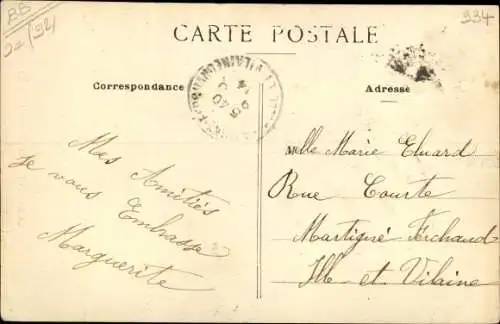 BB
934
CARTE POSTALE
Correspondance
Adresse
Mes Amitiés
Je vous Embrasse
Marguerite
Melle Marie Eluard
Rue Courte
Martigné Ferchaud
Ille et Vilaine